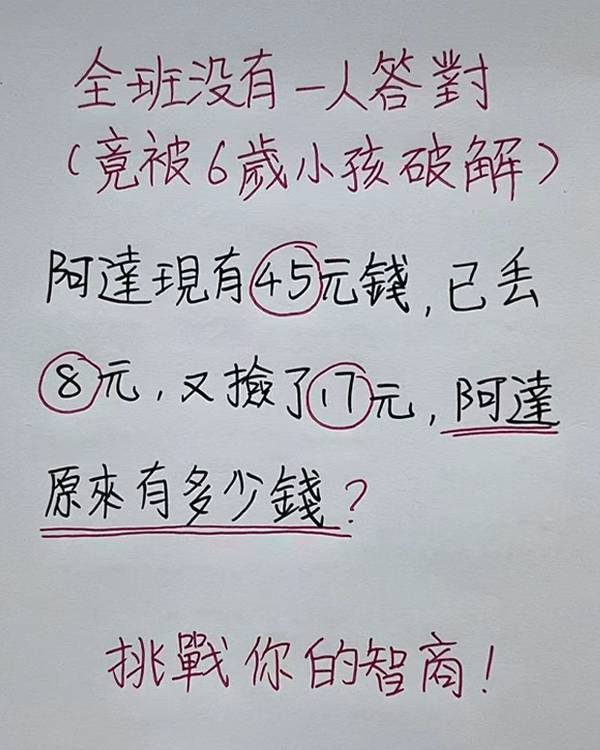 全班没有一人答對
(竟被6歲小孩破解)
阿達現有45元錢,已丢
8元,又撿了17元,阿達
原來有多少錢?
挑戰你的智商!